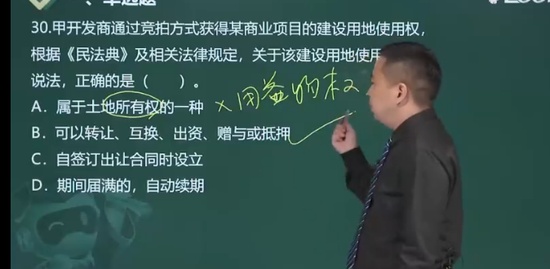 30.甲开发商通过竞拍方式获得某商业项目的建设用地使用权，
根据《民法典》及相关法律规定，关于该建设用地使用
说法，正确的是（ ）。
A．属于土地所有权的一种 × 用益物权
B．可以转让、互换、出资、赠与或抵押
C．自签订出让合同时设立
D．期间届满的，自动续期